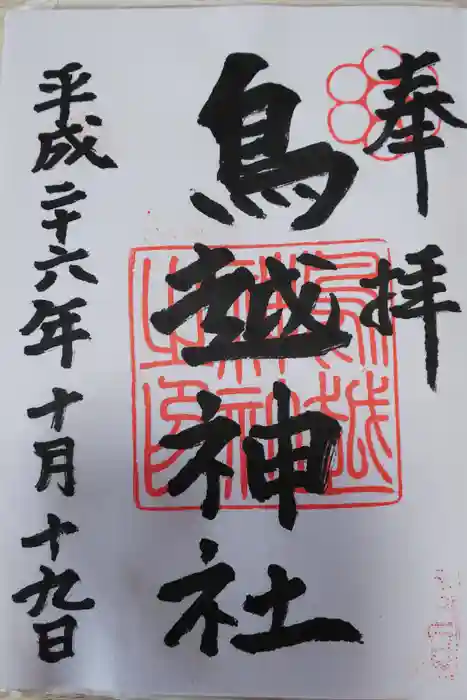 奉拝
鳥越神社
平成二十六年十月十九日